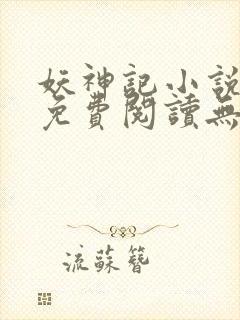 妖神記小說
免費閱讀無
流蘇簪